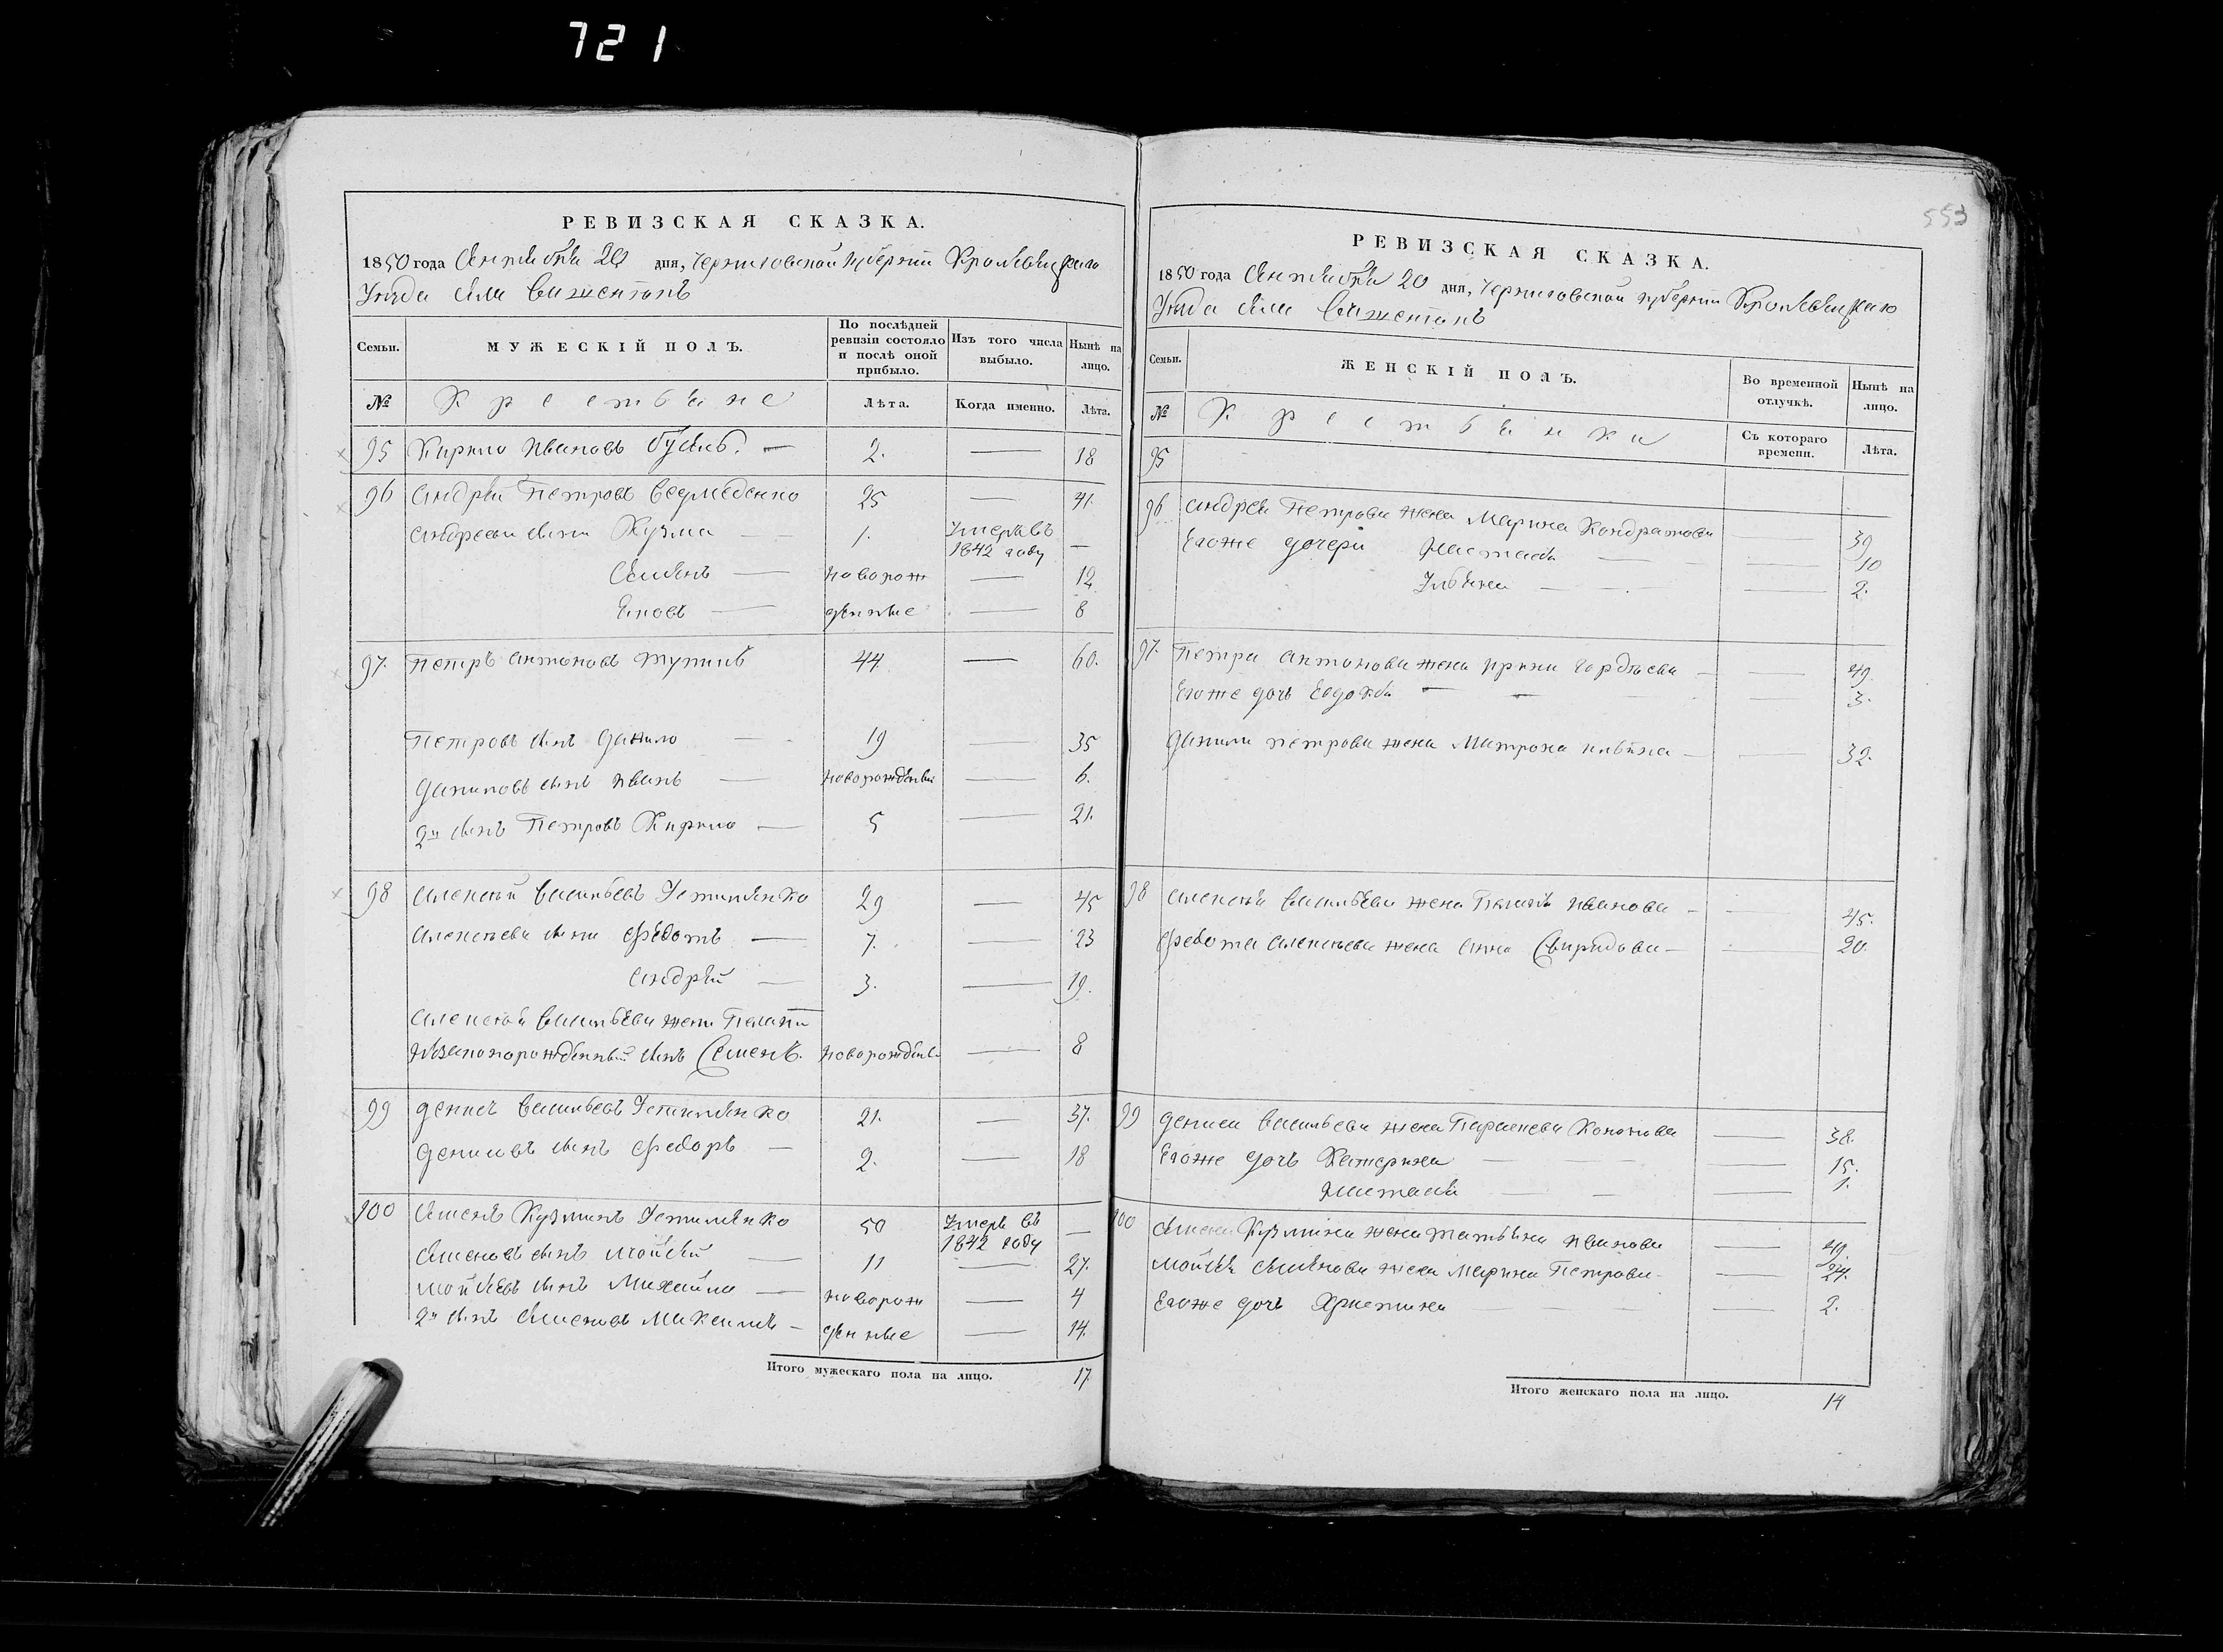 721
РЕВИЗСКАЯ СКАЗКА.
1850 года Сентября 20 дня, Черниговской губернии Кролевецкаго
Уезда села
Семьи. МУЖЕСКІЙ ПОЛЪ. По послѣдней ревизіи состояло и послѣ оной прибыло. Изъ того числа выбыло. Нынѣ на лицо.
№ Крестьяне Лѣта. Когда именно. Лѣта.
95 Кирило Ивановъ 2. — 18
96 Андрей Петровъ Ведмеденко 25 — 41.
Андреевы сыны Кузма — 1. Умеръ въ 1842 году —
Семенъ — новорож — 12
Яковъ — денные — 8
97. Петръ Антоновъ 44 — 60.
Петровъ сынъ Данило — 19 — 35
Даниловъ сынъ Иванъ — новорожденный — 6.
2й сынъ Петровъ Кирило — 5 — 21.
98 Алексей Васильевъ Устименко 29 — 45
Алексеевы сыны Федотъ — 7. — 23
Андрей — 3. — 19.
Алексея Васильева жены Пелагеи
незаконорожденный сынъ Семенъ. новорожден — 8
99 Денисъ Васильевъ Устименко 21. — 37.
Денисовъ сынъ Федоръ — 2. — 18
100 Семенъ Кузминъ Устименко 50 Умеръ въ 1842 году —
Семеновъ сынъ Мойсей — 11 — 27.
Мойсеевъ сынъ Михайло — новорож — 4
2й сынъ Семеновъ Максимъ — денные — 14.
Итого мужескаго пола на лицо. 17.
553
РЕВИЗСКАЯ СКАЗКА.
1850 года Сентября 20 дня, Черниговской губернии Кролевецкаго
Уезда села
Семьи. ЖЕНСКІЙ ПОЛЪ. Во временной отлучкѣ. Нынѣ на лицо.
№ Крестьянки Съ котораго времени. Лѣта.
95
96 Андрея Петрова жена Марина Кондратова — 39
Его же дочери Настасья — 10
Ульяна — 2.
97. Петра Антонова жена Ирина Гордеева — 49.
Его же дочь Евдокия — 3.
Данила Петрова жена Матрона — 32.
98 Алексея Васильева жена Пелагея Иванова — 45.
Федота Алексеева жена Анна Свиридова — 20.
99 Дениса Васильева жена Параскева Кононова — 38.
Его же дочь Катерина — 15.
Настасья — 1.
100 Семена Кузмина жена Татьяна Иванова — 49.
Мойсея Семенова жена Марина Петрова — 24.
Его же дочь Христина — 2.
Итого женскаго пола на лицо. 14